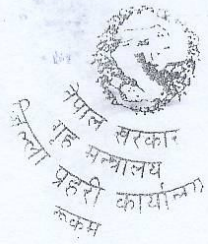 नेपाल सरकार
गृह मन्त्रालय
जिल्ला प्रहरी कार्यालय
रूकुम